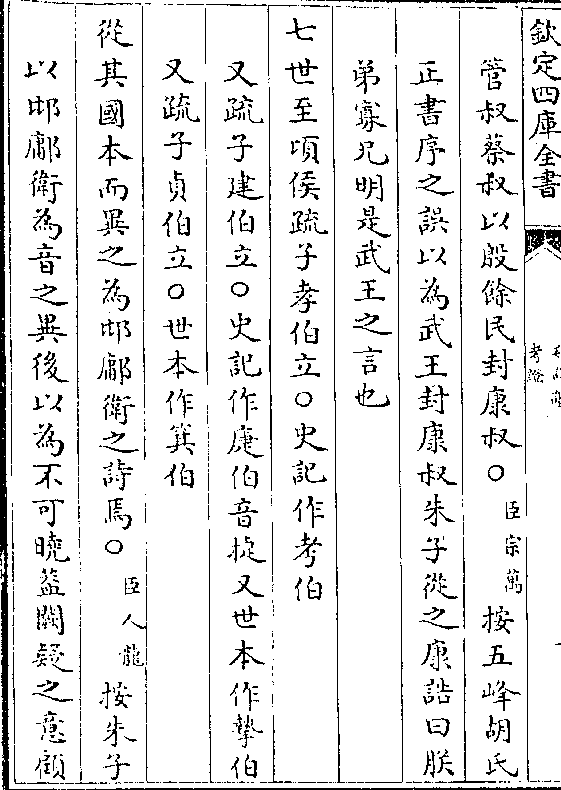 欽定四庫全書
考證
管叔蔡叔以殷餘民封康叔○臣宗萬按五峰胡氏
正書序之誤以為武王封康叔朱子從之康誥曰朕
弟寡兄明是武王之言也
七世至頃侯疏子孝伯立○史記作考伯
又疏子建伯立○史記作庱伯音捷又世本作摯伯
又疏子貞伯立○世本作箕伯
從其國本而異之為邶鄘衛之詩焉○臣人龍按朱子
以邶鄘衛為音之異後以為不可曉葢闕疑之意顧